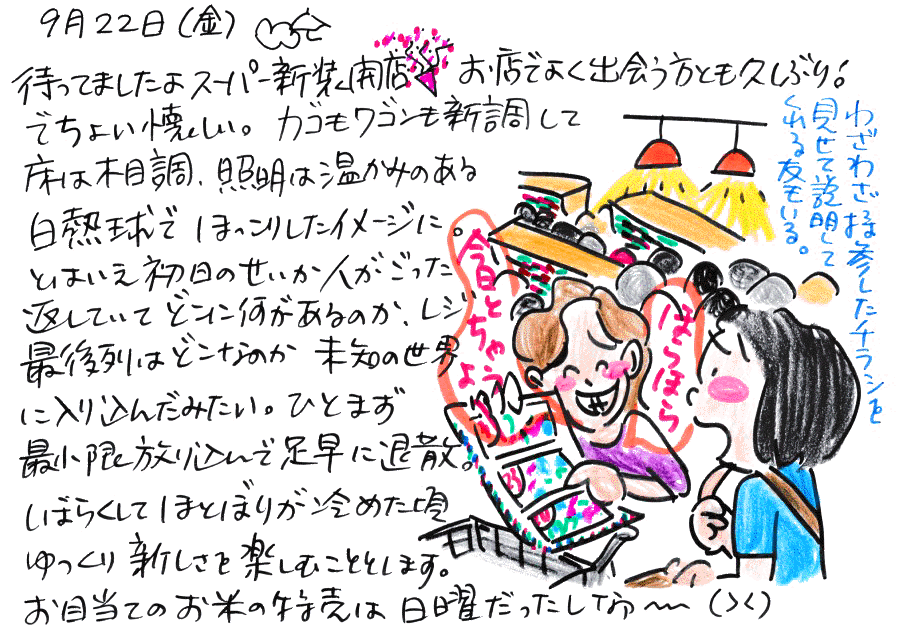 9月22日(金)
待ってましたよスーパー新装開店 お店でよく出会う方とも久しぶり!
でちょい懐しい。カゴもワゴンも新調して
床は木目調、照明は温かみのある
白熱球でほっこりしたイメージに。
とはいえ初日のせいか人がごった
返していてどこに何があるのか、レジ
最後列はどこなのか 未知の世界
に入り込んだみたい。ひとまず
最小限放り込んで足早に退散。
しばらくしてほとぼりが冷めた頃
ゆっくり新しさを楽しむこととします。
お目当てのお米の特売は日曜だったしなぁ〜
わざわざ持参したチラシを
見せて説明して
くれる友もいる。
ほらほら
今日とちゃうよ
23